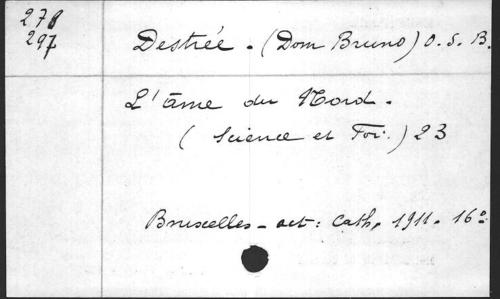 278
297
Destrée. (Dom Bruno) O. S. B.
L'âme du Nord.
(Science et Foi.) 23
Bruxelles - act: cath, 1911. 16º